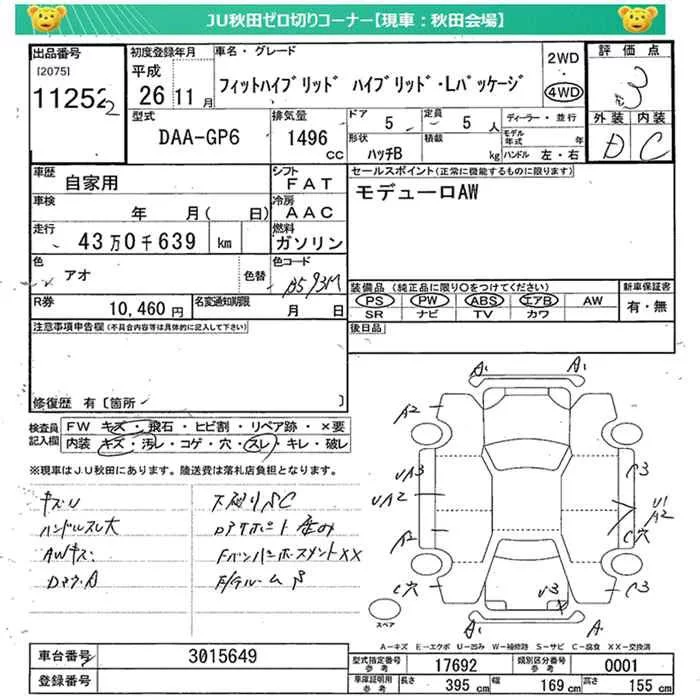 JU秋田ゼロ切りコーナー【現車：秋田会場】
出品番号
[2075]
11252
2
初度登録年月
平成
26年11月
車名・グレード
フィットハイブリッド ハイブリッド・Lパッケージ
2WD
4WD
評価点
3
外装 内装
D C
型式
DAA-GP6
排気量
1496
cc
ドア
5
定員
5人
形状
ハッチB
積載
kg
ディーラー・並行
モデル年式
年
ハンドル 左・右
車歴
自家用
シフト
FAT
車検
年 月( 日)
冷房
AAC
走行
43万0千639 km
燃料
ガソリン
色
アオ
色替
色コード
B593M
R券
10,460円
名変通知期限
月 日
セールスポイント(正常に機能するものに限ります)
モデューロAW
装備品(純正品に限り○をつけてください)
PS PW ABS エアB AW
SR ナビ TV カワ
新車保証書
有・無
後日品
注意事項申告欄(不具合内容等は具体的に記入して下さい)
修復歴 有[箇所 ]
検査員記入欄
FW キズ・飛石・ヒビ割・リペア跡・×要
内装 キズ・汚レ・コゲ・穴・スレ・キレ・破レ
※現車はJU秋田にあります。陸送費は落札店負担となります。
キズU
ハンドルスレ大
AWキズ
下廻りSC
A1 A1
A2
UA3
UA2
A2
C穴
C3
U1
A2
C穴
C3
U3
A1
A
スペア
A-キズ E-エクボ U-凹み W-補修跡 S-サビ C-腐食 XX-交換済
車台番号
3015649
登録番号
型式指定番号参考
17692
類別区分番号参考
0001
車庫証明用参考
長さ 395cm 幅 169cm 高さ 155cm